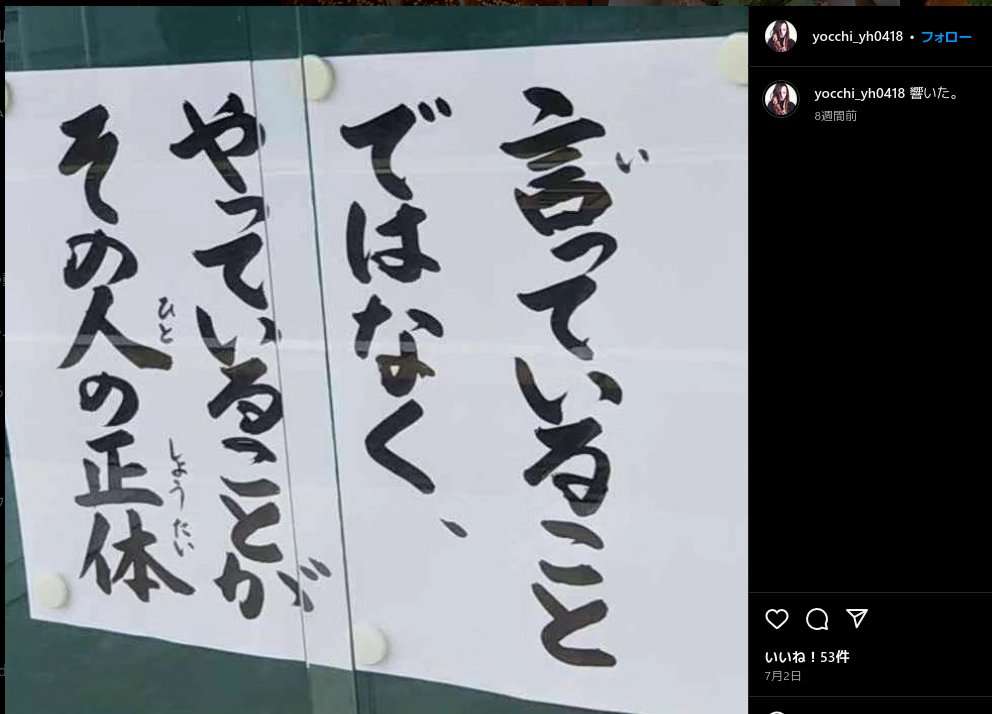 言っていること
い
ではなく、
やっていることが
その人の正体
ひと
しょうたい
yocchi_yh0418 • フォロー
yocchi_yh0418 響いた。
8週間前
いいね！53件
7月2日